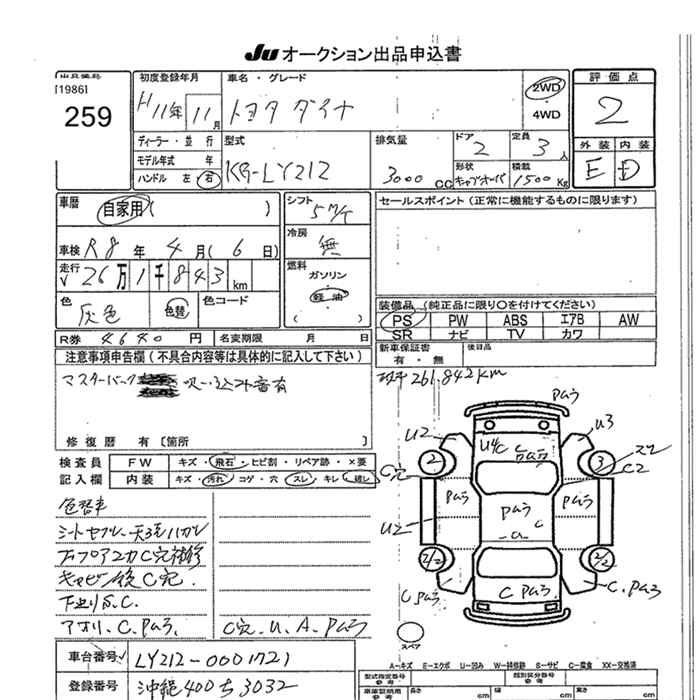 JU オークション出品申込書
出品番号
[1986]
259
初度登録年月
H11年11月
車名・グレード
トヨタ ダイナ
2WD
4WD
評価点
2
ディーラー・並行
モデル年式 年
ハンドル 左 右
型式
KG-LY212
排気量
3000 CC
ドア
2
定員
3人
形状
キャブオーバ
積載
1500 Kg
外装 内装
E D
車歴
自家用( )
シフト
5 M/T
セールスポイント(正常に機能するものに限ります)
車検 R8年4月(6日)
冷房
無
走行
√ 26万1千843 km
燃料
ガソリン
軽油
( )
色
灰色
色替
色コード
装備品(純正品に限り○を付けてください)
PS PW ABS エアB AW
SR ナビ TV カワ
R券 4640円
名変期限 月 日
新車保証書
有・無
後日品
注意事項申告欄(不具合内容等は具体的に記入して下さい)
261.842km
マスターバック
音有
修復歴 有〔箇所 〕
検査員
記入欄
FW
キズ・飛石・ヒビ割・リペア跡・×要
内装
キズ・汚れ・コゲ・穴・スレ・キレ・破レ
色替車
キャビン後C穴.
下廻りS.C.
アオリ.C.Paう.
C穴.U.A.Paう
Paう
U2
U3
U4C
C
Paう
2
3
スリ
C2
C穴
Paう
Paう
Paう
U2
C
2/2
2/2
C Paう
C Paう
C.Paう
スペア
車台番号 √ LY212-0001721
A-キズ E-エクボ U-凹み W-補修跡 S-サビ C-腐食 XX-交換済
登録番号
沖縄400ち3032
型式指定番号
参考
類別区分番号
参考
参考
長さ cm
幅 cm
高さ cm